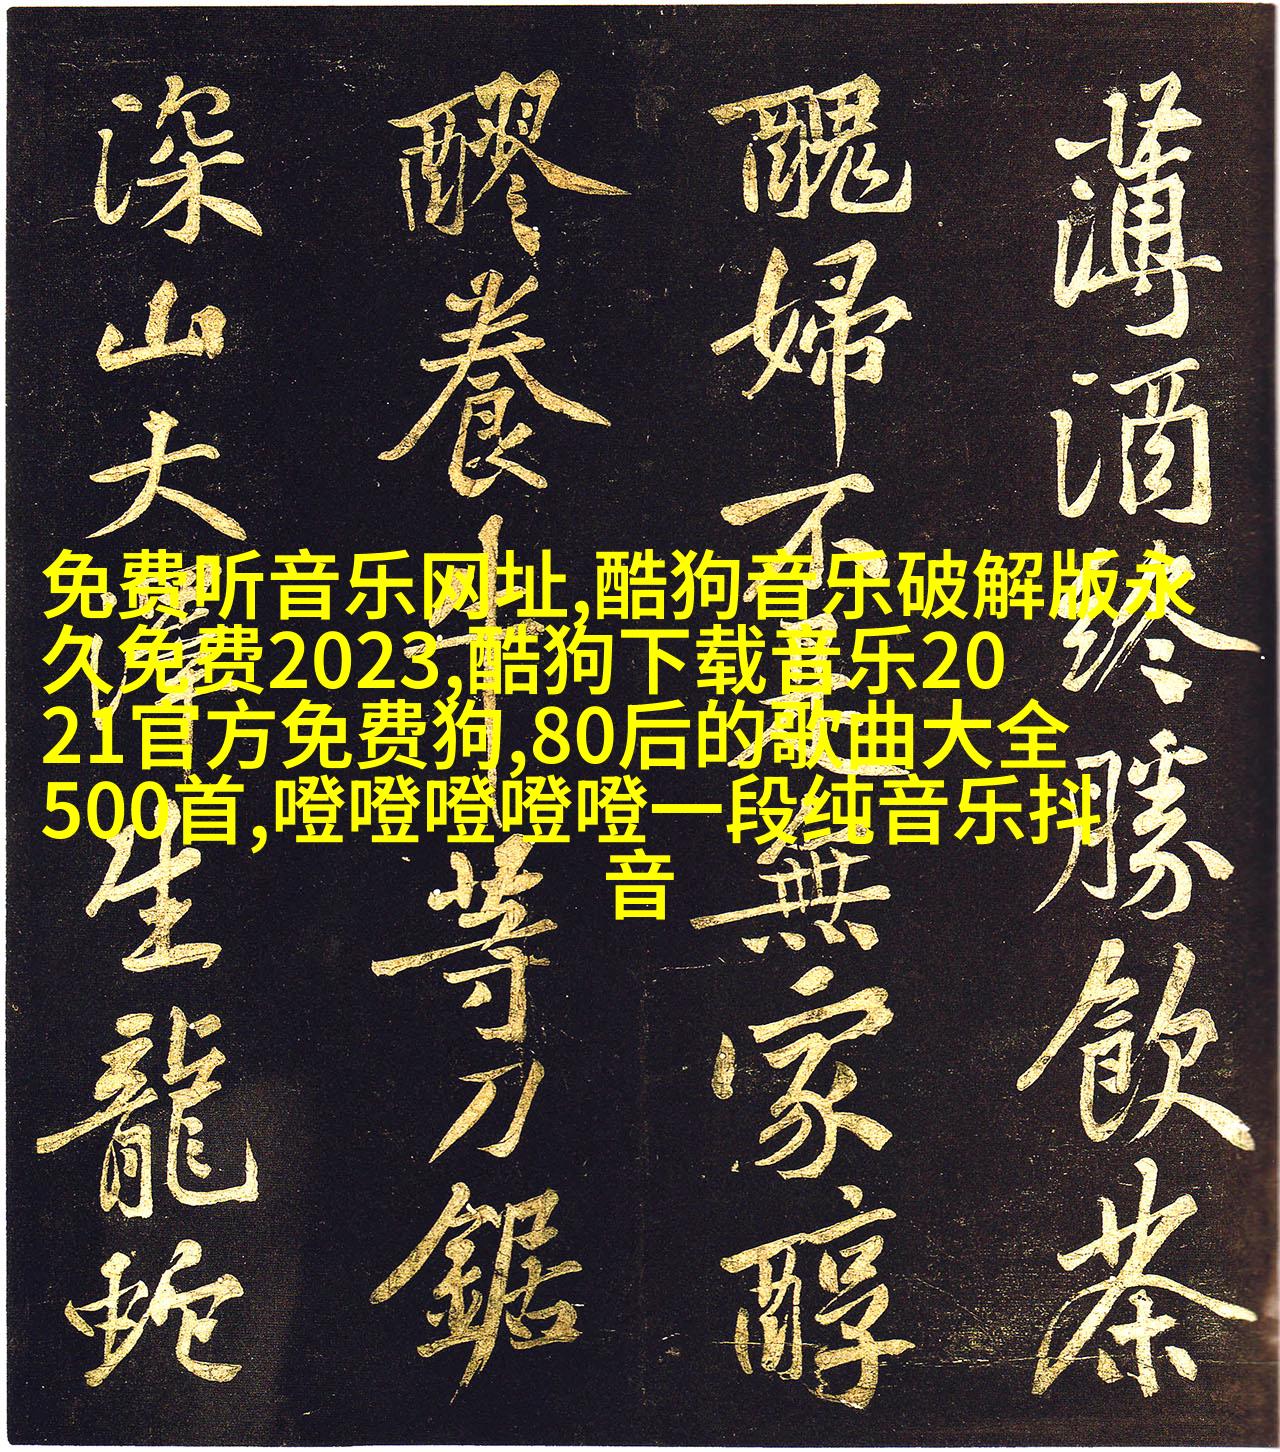 免费听音乐网址,酷狗音乐破解版永
久免费2023,酷狗下载音乐20
21官方免费狗,80后的歌曲大全
500首,噔噔噔噔噔一段纯音乐抖
音
薄酒終勝飲茶
醜婦不是無家醇
醪養牛等刀鋸
深山大澤生龍蛇